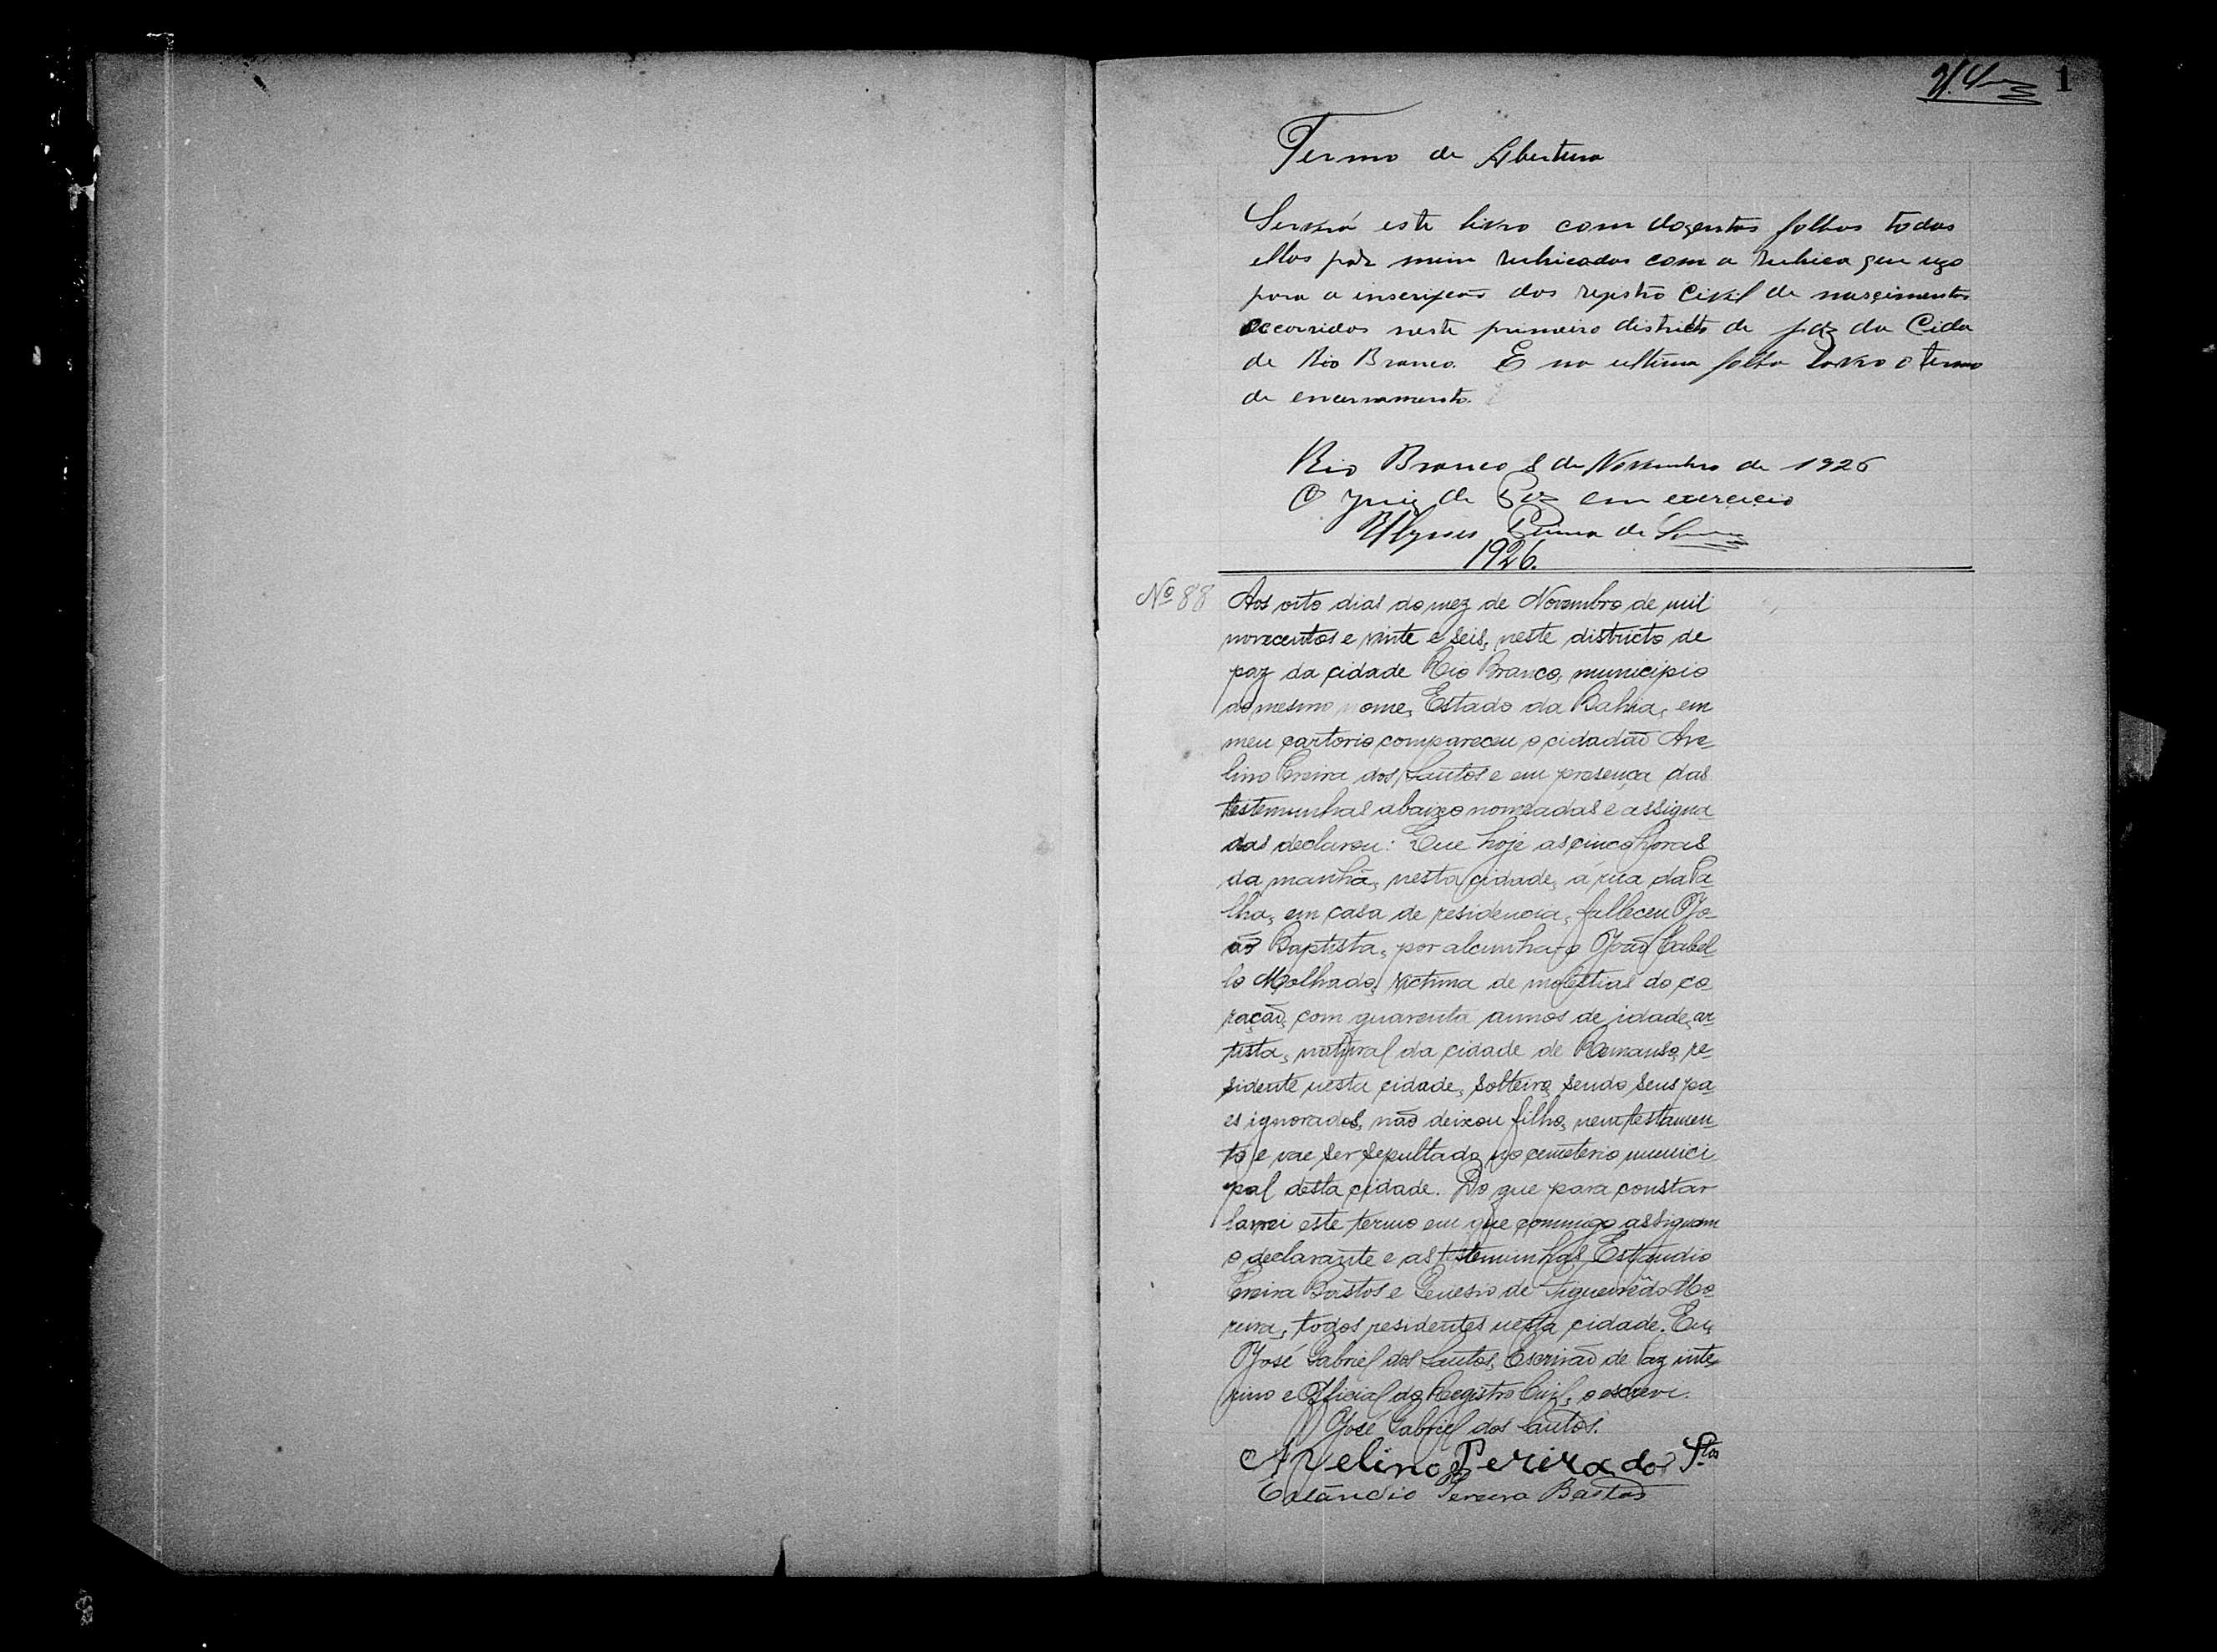 1
Termo de Abertura
Servirá este livro com dozentas folhas todas
ellas por mim rubricadas com a rubrica que uzo
para a inscripção dos registro Civil de nascimentos
occorridos neste primeiro districto de paz da Cida
de Rio Branco. E na ultima folha lavro o termo
de encerramento.
Rio Branco 8 de Novembro de 1926
O Juiz de Paz em exercicio
Ulysses de
1926.
Nº 88
Aos oito dias do mez de Novembro de mil
novecentos e vinte e seis, neste districto de
paz da cidade Rio Branco, municipio
do mesmo nome, Estado da Bahia, em
meu cartorio, compareceu o cidadão Ave-
lino Pereira dos Santos e em presença das
testemunhas abaixo nomeadas e assigna-
das declarou: Que hoje as cinco horas
da manhã, nesta cidade, á rua da Pa-
lha, em casa de residencia, falleceu Jo-
ão Baptista, por alcunha o João Cabel-
lo Molhado, victima de molestias do co-
ração, com quarenta annos de idade, ar-
tista, natural da cidade de Remanso, re-
sidente nesta cidade, solteiro, sendo seus pa-
es ignorados, não deixou filho, nem testamen-
to e vae ser sepultado no cemeterio munici-
pal desta cidade. Do que para constar
lavrei este termo em que commigo assignam
o declarante e as testemunhas Estaudio
Pereira Bastos e Genesio de Figueirêdo Mo-
reira, todos residentes nesta cidade. Eu,
José Gabriel dos Santos, Escrivão de Paz inte-
rino e Official do Registro Civil, o escrevi.
José Gabriel dos Santos.
Avelino Pereira dos Stos
Pereira Bastos